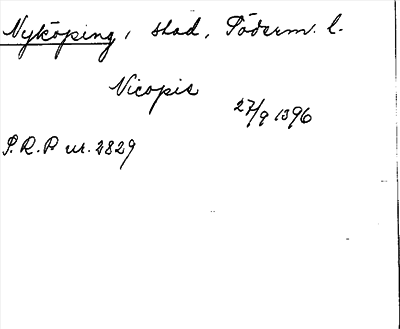 Nyköping, stad, Söderm. l.
Nicopie
27/9 1396
S.R.P nr. 2829